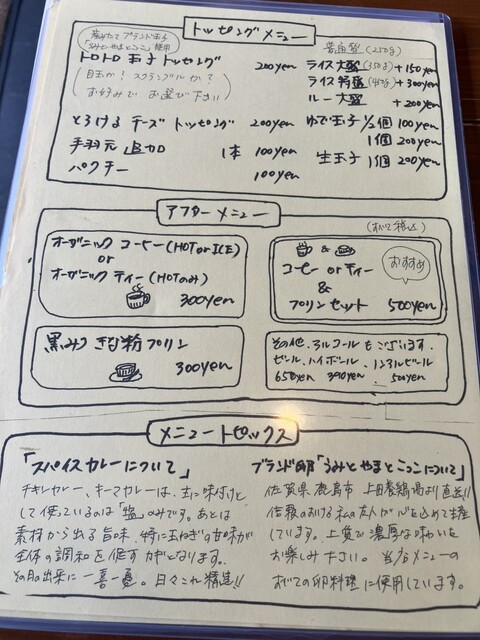 トッピングメニュー
産みたて ブランド玉子
「うみとやまとこっこ」使用
トロトロ玉子トッピング 200yen
(目玉か!スクランブルかて
お好みで お選び下さい)
とろける チーズ トッピング 200yen
手羽元 追加 1本 100yen
パクチー 100yen
普通盛 (250g)
ライス大盛(350g) +150yen
ライス特盛(450g) +300yen
ルー大盛 +200yen
ゆで玉子 1/2個 100yen
1個 200yen
生玉子 1個 200yen
アフターメニュー
(すべて税込)
オーガニック コーヒー(HOT or ICE)
or
オーガニック ティー(HOTのみ)
300yen
黒みつ きな粉プリン
300yen
&
コーヒー orティー
&
プリンセット 500yen
おすすめ
その他、アルコールもございます。
ビール、ハイボール、ノンアルビール
650yen 390yen 500yen
メニュートピックス
「スパイスカレーについて」
チキンカレー、キーマカレーは、主に味付けと
して使っているのは「塩」のみです。あとは
素材から出る旨味、特に玉ねぎの甘味が
全体の調和を促す カギとなります。
その日の出来に一喜一憂。日々これ精進!!
ブランド卵「うみとやまとこっこについて」
佐賀県鹿島市 上田養鶏場より直送!!
信頼のおける私の友人が心を込めて生産
しています。上質で濃厚な味わいを
お楽しみ下さい。当店メニューの
すべての卵料理に使用しています。